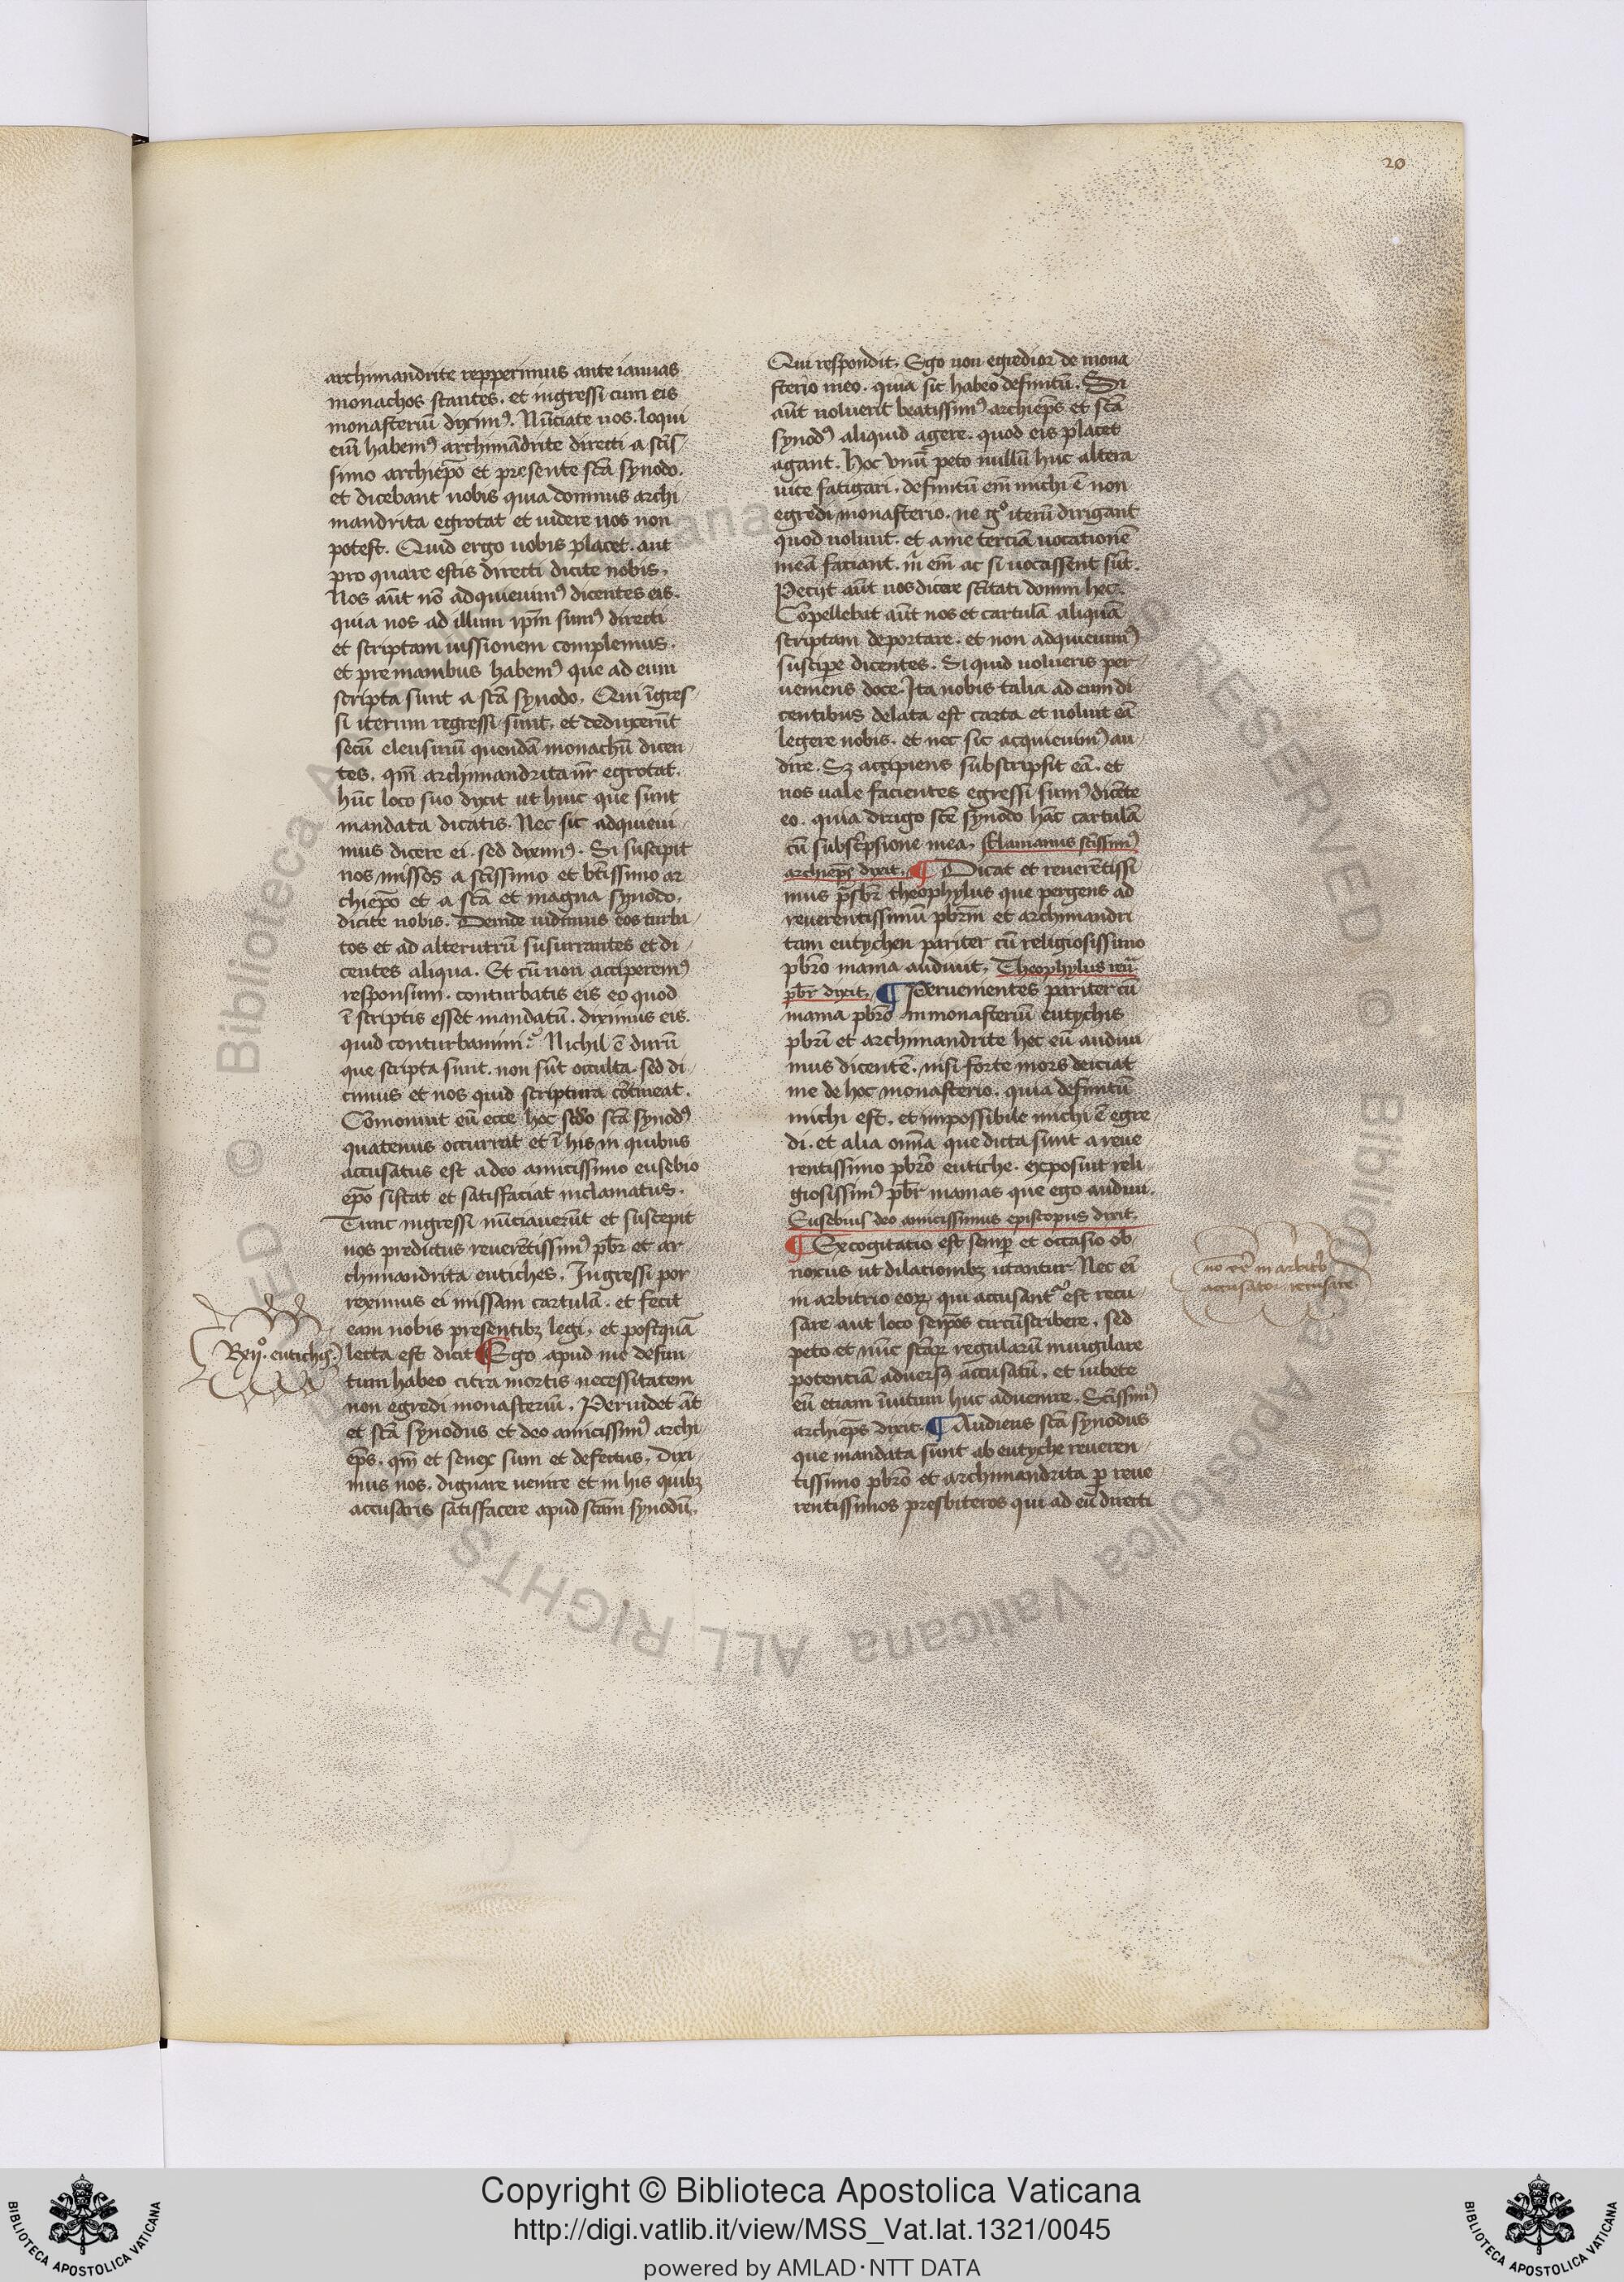 20
archimandrite repperimus ante ianuas
monachos stantes. et ingressi cum eis
monasteriū diximꝰ. Nūciate uos. loqui
eiū habemꝰ archimādrite directi a scīs-
simo archiepō et presente scā synodo.
et dicebant nobis quia domnus archi-
mandrita egrotat et uidere uos non
potest. Quid ergo uobis placet. aut
pro quare estis directi dicite nobis.
Nos aūt nō adquieuimꝰ dicentes eis.
quia nos ad illum ip̄m sumꝰ directi
et scriptam iussionem complemus.
et pre manibus habemꝰ que ad eum
scripta sunt a scā synodo. Qui īgres-
si iterum regressi sunt. et deduxerūt
secū eleusiniū quendā monachū dicen-
tes. qm̄ archimandrita nr̄ egrotat.
hūc loco suo dixit ut huic que sunt
mandata dicatis. Nec sic adquieui-
mus dicere ei. sed diximꝰ. Si suscipit
nos missos a scīssimo et btīssimo ar
chiepō et a scā et magna synodo.
dicite nobis. Deinde uidimus eos turba-
tos et ad alterutrū susurrantes et di-
centes aliqua. Et cū non acciperemꝰ
responsum. conturbatis eis eo quod
ī scriptis esset mandatū. diximus eis.
quid conturbamini? Nichil ē durū
que scripta sunt. non sūt occulta. sed di-
cimus et nos quid scriptura cōtineat.
Comonuit eū ecce hoc scdo scā synodꝰ
quatenus occurrat et ī his in quibus
accusatus est a deo amicissimo eusebio
epō sistat et satisfaciat inclamatus.
Tunc ingressi nūciauerūt et suscepit
nos predictus reuerētissimꝰ pbr̄ et ar-
chimandrita eutiches. Ingressi por-
reximus ei missam cartulā. et fecit
eam nobis presentibꝫ legi. et postquā
Rn̄o. eutichis.
lecta est dicit ¶ Ego apud me defini-
tum habeo citra mortis necessitatem
non egredi monasteriū. Peruidet aūt
et scā synodus et deo amicissimꝰ archi
ep̄s. qm̄ et senex sum et defectus. Dixi-
mus nos. dignare uenire et in his quibꝫ
accusaris satisfacere apud scām synodū.
Qui respondit. Ego non egredior de mona
sterio meo. quia sic habeo definitū. Si
aūt uoluerit beatissimꝰ archiep̄s et scā
synodꝰ aliquid agere. quod eis placet
agant. Hoc unū peto nullū huc altera
uice fatigari. definitū em̄ michi ē non
egredi monasterio. ne gͦ iterū dirigant
quod uolunt. et a me terciā uocationē
meā faciant. m̄ em̄ ac si uocassent sūt.
Peciit aūt nos dicere scītati domni hec.
Compellebat aūt nos et cartulā aliquā
scriptam deportare. et non adquieuimꝰ
suscipe dicentes. Si quid uolueris per-
ueniens doce. Ita nobis talia ad eum di
centibus delata est carta et uoluit eā
legere nobis. et nec sic acquieuimꝰ au-
dire. Sꝫ accipiens subscripsit eā. et
nos uale facientes egressi sumꝰ dicēte
eo. quia dirigo scē synodo hāc cartulā
cū subscpsione mea. Flauianus scīssimꝰ
archiep̄s dixit. ¶ Dicat et reuerētissi-
mus psbr̄ theophylus que pergens ad
reuerentissimū pbrm̄ et archimandri
tam eutychen pariter cū religiosissimo
pbrō mama audiuit. Theophylus reu̅
pbr̄ dixit. ¶ Peruenientes pariter cū
mama pbrō in monasteriū eutychis
pbrī et archimandrite hec eū audiui-
mus dicentē. nisi forte mors deiciat
me de hoc monasterio. quia definitū
michi est. et impossibile michi ē egre
di. et alia om̄a que dicta sunt a reue
rentissimo pbrō eutiche. exposuit reli-
giosissimꝰ pbr̄ mamas que ego audiui.
Eusebius deo amicissimus episcopus dixit.
¶ Excogitatio est semp et occasio ob-
noxiis ut dilationibꝫ utantur. Nec em̄
in arbitrio eorꝫ qui accusantꝰ est recu-
sare aut loco semp̄os circūscribere. sed
peto et nūc scāꝫ regularū inuigilare
potentiā aduersꝰ accusatū. et iubete
eū etiam īuitum huc aduenire. Scīssimꝰ
archiep̄s dixit. ¶ Audiens scā synodus
que mandata sunt ab eutyche reueren-
tissimo pbrō et archimandrita p reue-
rentissimos presbiteros qui ad eū directi
nō ēē in arbitrio
accusatoꝫ recusare
Copyright © Biblioteca Apostolica Vaticana
http://digi.vatlib.it/view/MSS_Vat.lat.1321/0045
powered by AMLAD・NTT DATA
BIBLIOTECA APOSTOLICA VATICANA
BIBLIOTECA APOSTOLICA VATICANA